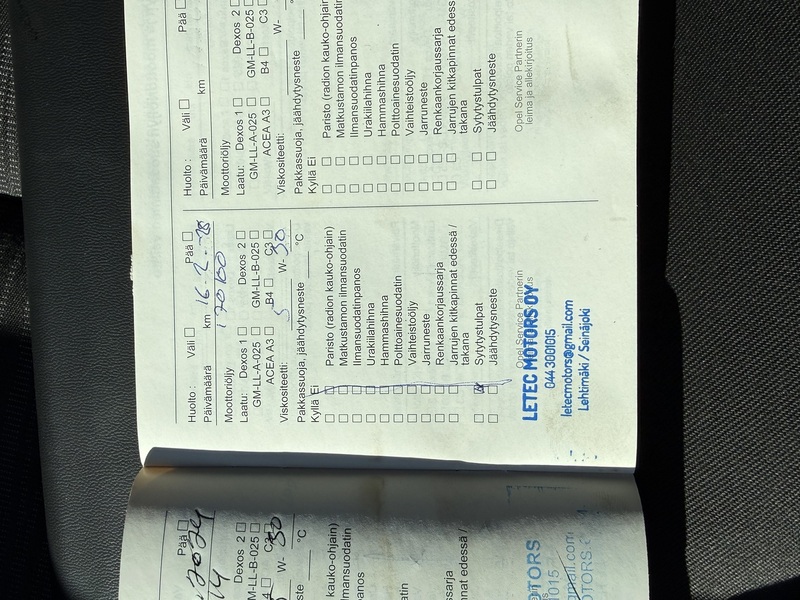 Huolto : Väli ☐ Pää ☐
Päivämäärä km
Moottoriöljy
Laatu: Dexos 1 ☐ Dexos 2 ☐
GM-LL-A-025 ☐ GM-LL-B-025 ☐
ACEA A3 ☐ B4 ☐ C3 ☐
Viskositeetti: W-
Pakkassuoja, jäähdytysneste °
Kyllä Ei
☐ ☐ Paristo (radion kauko-ohjain)
☐ ☐ Matkustamon ilmansuodatin
☐ ☐ Ilmansuodatinpanos
☐ ☐ Urakiilahihna
☐ ☐ Hammashihna
☐ ☐ Polttoainesuodatin
☐ ☐ Vaihteistoöljy
☐ ☐ Jarruneste
☐ ☐ Renkaankorjaussarja
☐ ☐ Jarrujen kitkapinnat edess
takana
☐ ☐ Sytytystulpat
☐ ☐ Jäähdytysneste
Opel Service Partnerin
leima ja allekirjoitus
Huolto : Väli ☐ Pää ☐
Päivämäärä km 16-2-
170100
Moottoriöljy
Laatu: Dexos 1 ☐ Dexos 2 ☐
GM-LL-A-025 ☐ GM-LL-B-025 ☐
ACEA A3 ☐ B4 ☐ C3 ☐
Viskositeetti: 5 W- 30
Pakkassuoja, jäähdytysneste °C
Kyllä Ei
☐ ☐ Paristo (radion kauko-ohjain)
☐ ☐ Matkustamon ilmansuodatin
☐ ☐ Ilmansuodatinpanos
☐ ☐ Urakiilahihna
☐ ☐ Hammashihna
☐ ☐ Polttoainesuodatin
☐ ☐ Vaihteistoöljy
☐ ☐ Jarruneste
☐ ☐ Renkaankorjaussarja
☐ ☐ Jarrujen kitkapinnat edessä /
takana
☐ ☒ Sytytystulpat
☐ ☐ Jäähdytysneste
Opel Service Partnerin
LETEC MOTORS OY
044 3001015
letecmotors@gmail.com
Lehtimäki / Seinäjoki
Pää ☐
2024
Dexos 2 ☐
M-LL-B-025 ☐
C3
W- 30
°C
kauko-ohjain)
lmansuodatin
anos
in
sarja
nnat edessä /
OTORS
1015
gmail.com